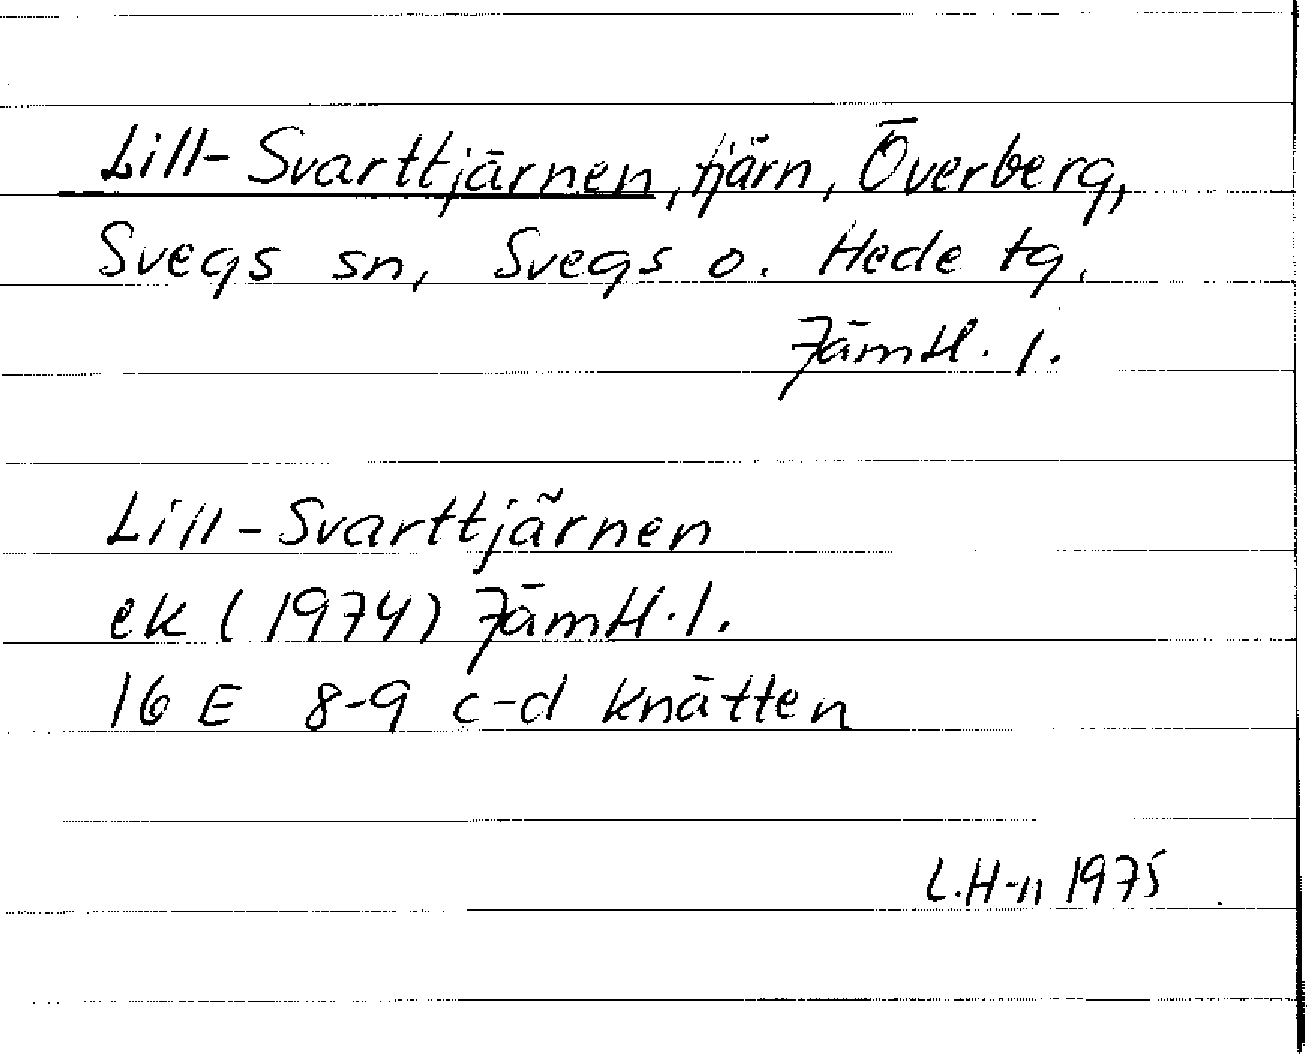 Lill-Svarttjärnen, tjärn, Överberg,
Svegs sn, Svegs o. Hede tg.
Jämtl. l.
Lill-Svarttjärnen
ek (1974) Jämtl. l.
16 E 8-9 c-d Knätten
L.H-n 1975